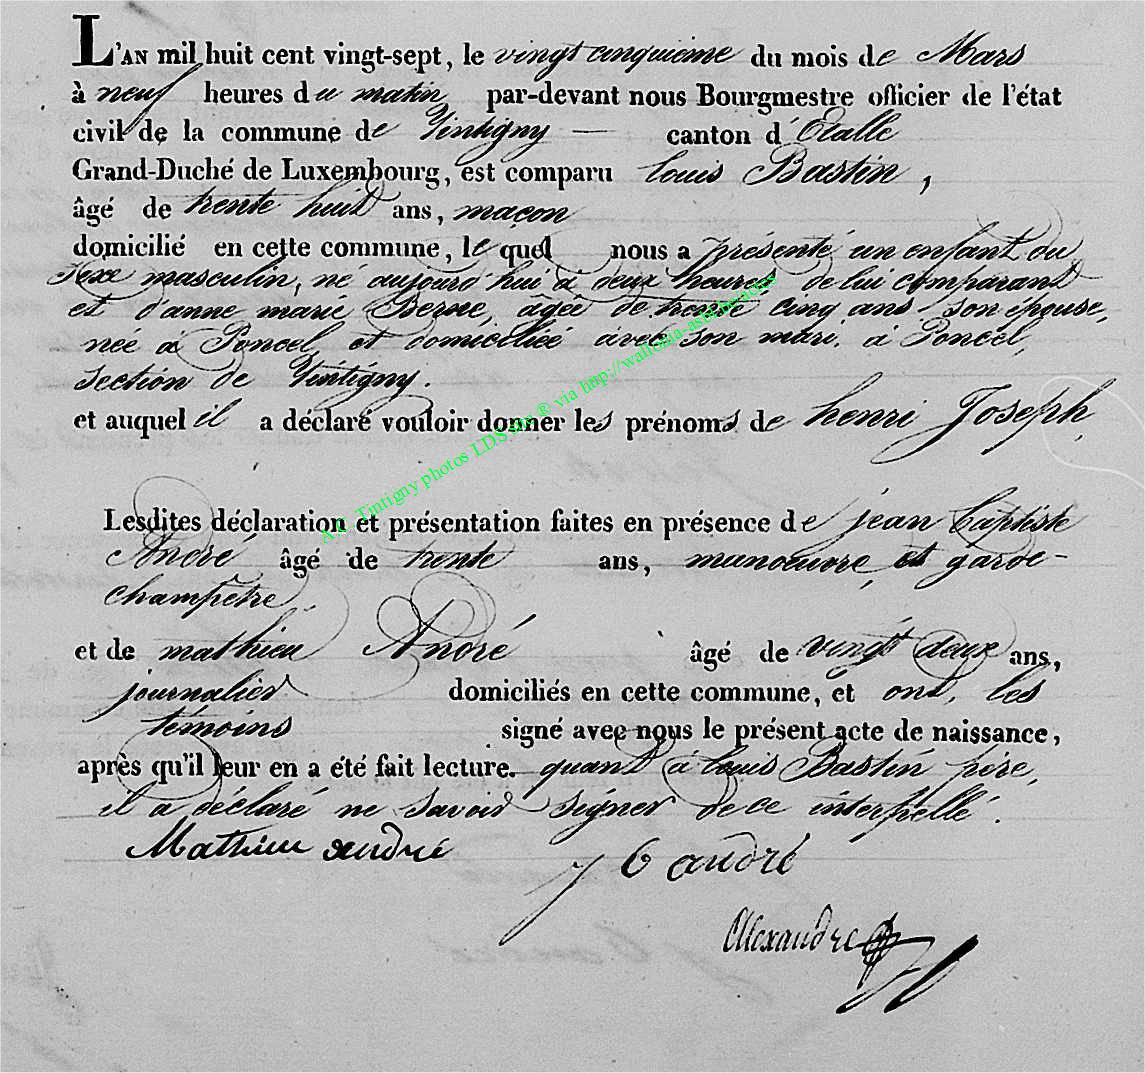 L'AN mil huit cent vingt-sept, le vingt cinquieme du mois de Mars
à neuf heures du matin par-devant nous Bourgmestre officier de l'état
civil de la commune de Tintigny — canton d'Etalle
Grand-Duché de Luxembourg, est comparu Louis Bastin,
âgé de trente huit ans, maçon
domicilié en cette commune, le quel nous a présenté un enfant du
sexe masculin, né aujourd'hui à deux heures de lui comparant
et d'anne marie âgée de trente cinq ans son épouse,
née à Poncel et domiciliée avec son mari, à Poncel,
section de Tintigny.
et auquel il a déclaré vouloir donner les prénoms de henri Joseph,
A.C. Tintigny photos LDS mc ® via http://wallonia-asbl.be/actes
Lesdites déclaration et présentation faites en présence de jean Baptiste
André âgé de trente ans, manoeuvre, et garde-
champêtre
et de mathieu André âgé de vingt deux ans,
journalier domiciliés en cette commune, et ont, les
témoins signé avec nous le présent acte de naissance,
après qu'il leur en a été fait lecture. quant à Louis Bastin père,
il a déclaré ne savoir signer de ce interpellé.
Mathieu andré J B andré
Alexandre